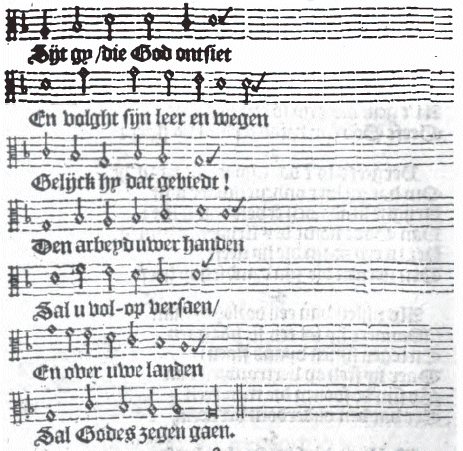 Sijt gy /die God ontsiet
En volght sijn leer en wegen
Gelijck hy dat gebiedt!
Den arbeyd uwer handen
Sal u vol-op versaen/
En over uwe landen
Sal Godes zegen gaen.